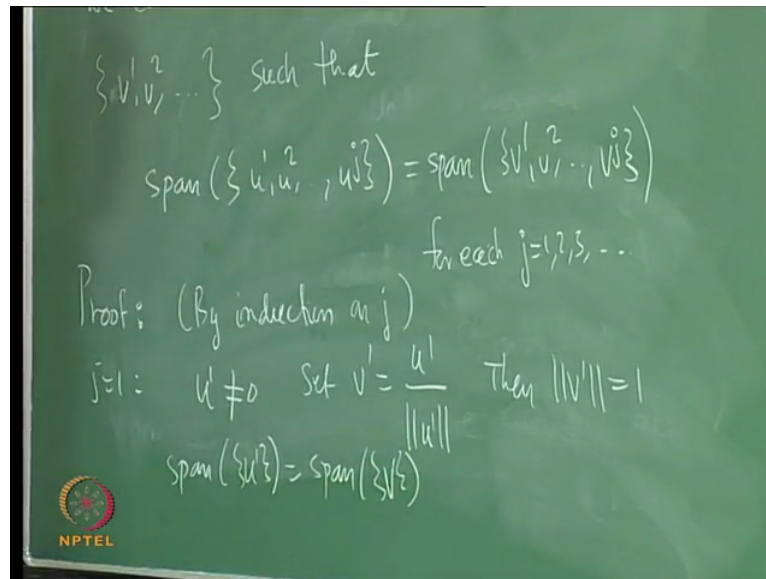 {v¹, v², ...} such that
span({u¹, u², .., uʲ}) = span({v¹, v², .., vʲ})
for each j=1,2,3, ...
Proof: (By induction on j)
j=1: u¹ ≠ 0 Set v¹ = u¹/||u¹|| Then ||v¹|| = 1
span({u¹}) = span({v¹})
NPTEL